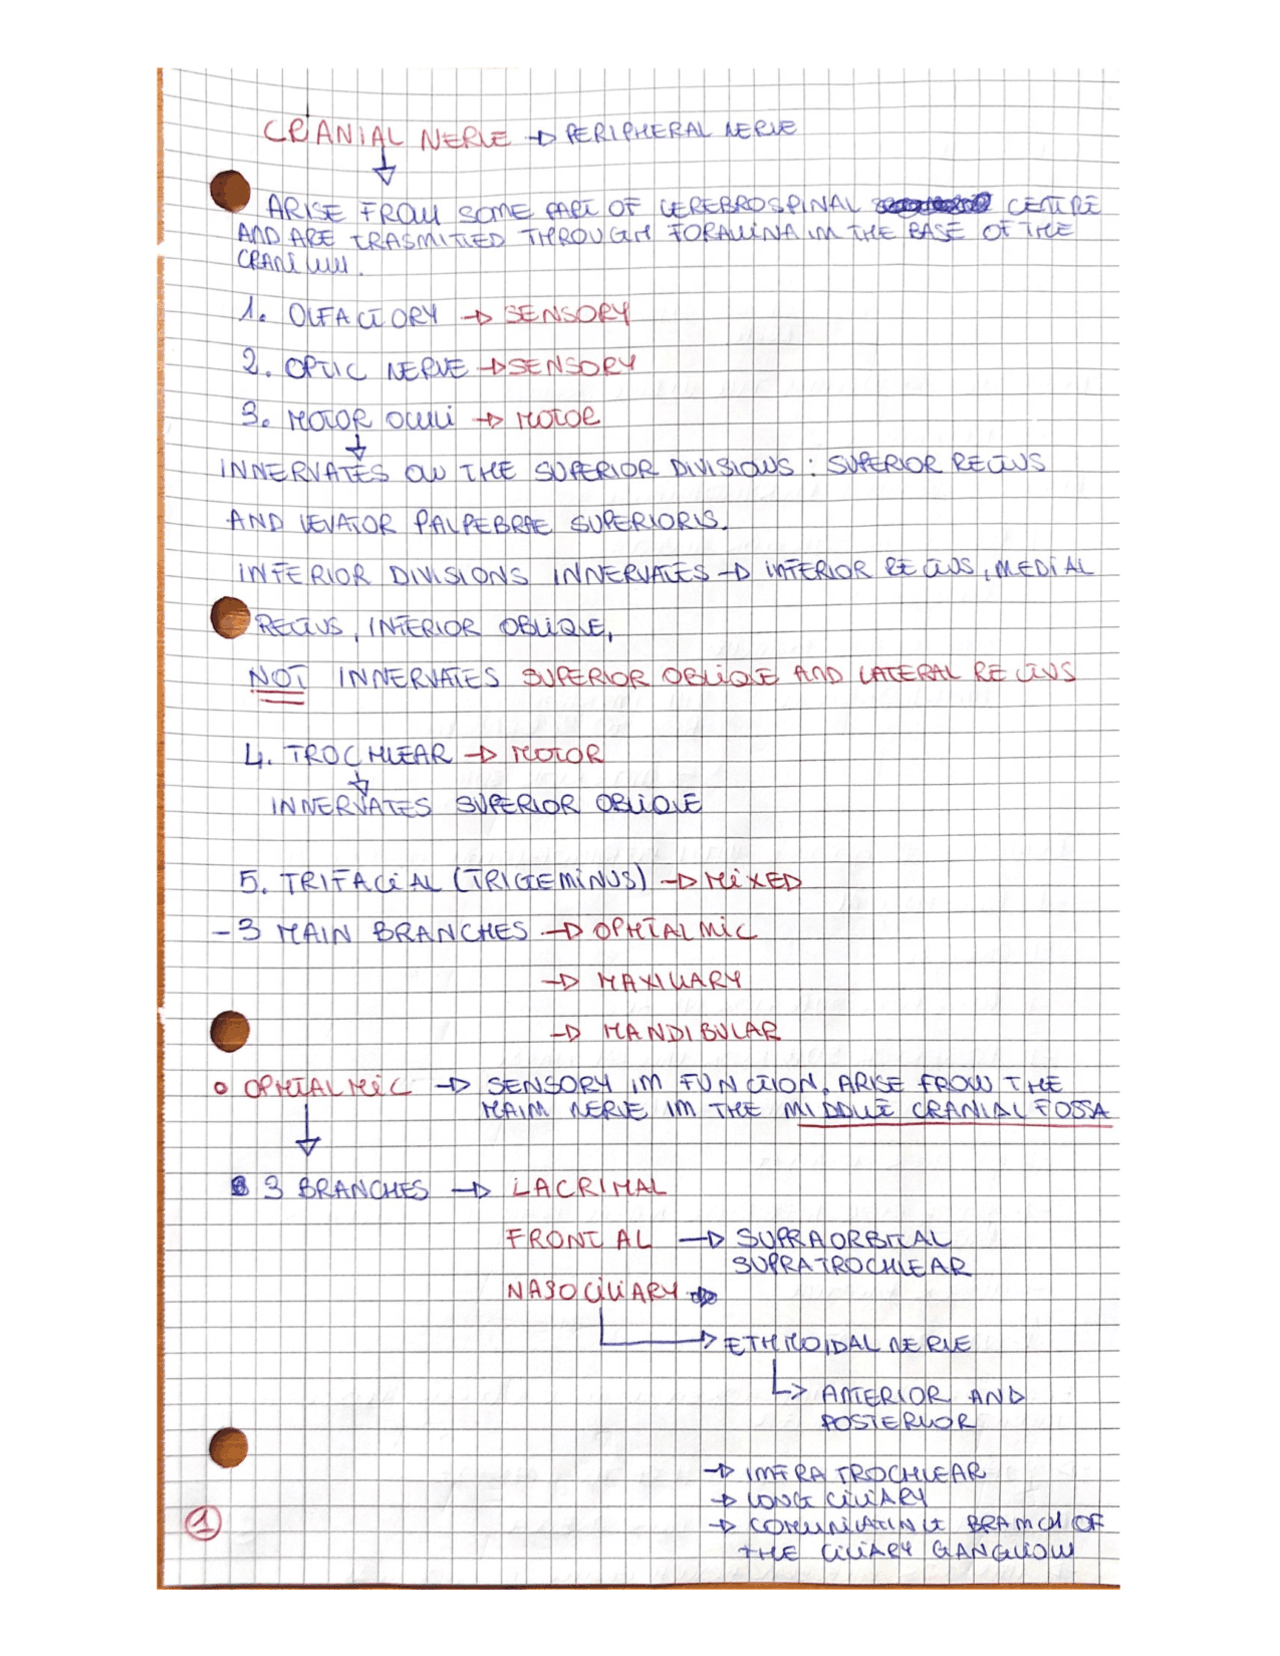 CRANIAL NERVE → PERIPHERAL NERVE
↓
ARISE FROM SOME PART OF CEREBROSPINAL CENTRE
AND ARE TRASMITTED THROUGH FORAMINA IN THE BASE OF THE
CRANIUM.
1. OLFACTORY → SENSORY
2. OPTIC NERVE → SENSORY
3. MOTOR OCULI → MOTOR
↓
INNERVATES ON THE SUPERIOR DIVISIONS : SUPERIOR RECTUS
AND LEVATOR PALPEBRAE SUPERIORIS.
INFERIOR DIVISIONS INNERVATES → INFERIOR RECTUS, MEDIAL
RECTUS, INFERIOR OBLIQUE,
NOT INNERVATES SUPERIOR OBLIQUE AND LATERAL RECTUS
4. TROCHLEAR → MOTOR
↓
INNERVATES SUPERIOR OBLIQUE
5. TRIFACIAL (TRIGEMINUS) → MIXED
- 3 MAIN BRANCHES → OPHTALMIC
→ MAXILLARY
→ MANDIBULAR
• OPHTALMIC → SENSORY IN FUNCTION, ARISE FROM THE
MAIN NERVE IN THE MIDDLE CRANIAL FOSSA
↓
3 BRANCHES → LACRIMAL
FRONTAL → SUPRAORBITAL
SUPRATROCHLEAR
NASOCILIARY →
→ ETHMOIDAL NERVE
→ ANTERIOR AND
POSTERIOR
→ INFRATROCHLEAR
→ LONG CILIARY
→ COMUNICATING BRANCH OF
THE CILIARY GANGLION
1